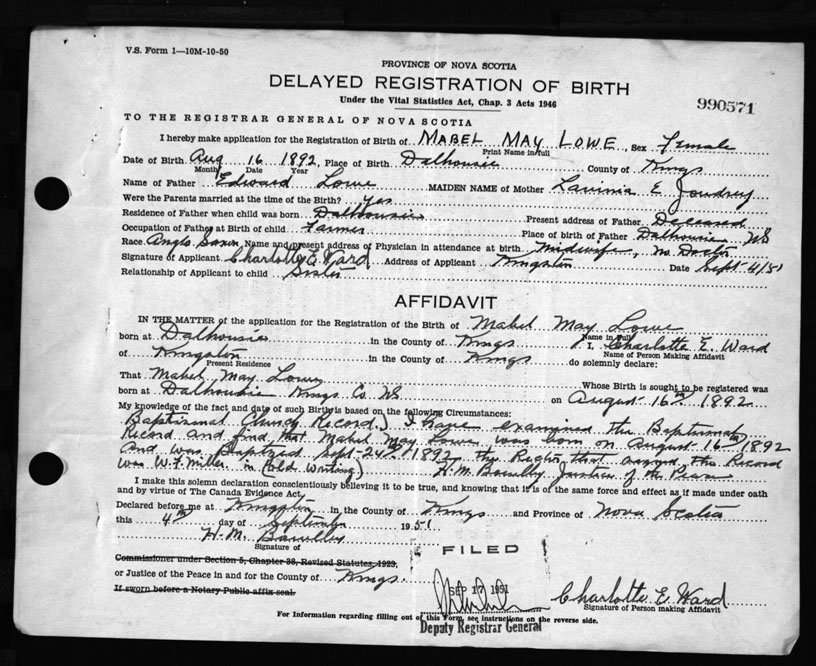 V.S. Form 1—10M-10-50
PROVINCE OF NOVA SCOTIA
DELAYED REGISTRATION OF BIRTH
Under the Vital Statistics Act, Chap. 3 Acts 1946
990571
TO THE REGISTRAR GENERAL OF NOVA SCOTIA
I hereby make application for the Registration of Birth of MABEL MAY LOWE, Sex Female
Print Name in full
Date of Birth Aug 16 1892, Place of Birth Dalhousie County of Kings
Month Date Year
Name of Father Edward Lowe MAIDEN NAME of Mother Lavinia E Joudrey
Were the Parents married at the time of the Birth? Yes
Residence of Father when child was born Dalhousie Present address of Father Deceased
Occupation of Father at Birth of child Farmer Place of birth of Father Dalhousie NS
Race Anglo Saxon Name and present address of Physician in attendance at birth Midwife, no Doctor
Signature of Applicant Charlotte E Ward Address of Applicant Kingston Date Sept 4/51
Relationship of Applicant to child Sister
AFFIDAVIT
IN THE MATTER of the application for the Registration of the Birth of Mabel May Lowe
Name in Full
born at Dalhousie in the County of Kings I, Charlotte E. Ward
Name of Person Making Affidavit
of Kingston in the County of Kings do solemnly declare:
Present Residence
That Mabel May Lowe Whose Birth is sought to be registered was
born at Dalhousie Kings Co NS on August 16th 1892
My knowledge of the fact and date of such Birth is based on the following Circumstances:
Baptismal Church Record. I have examined the Baptismal
Record and find that Mabel May Lowe was born on August 16th 1892
and was baptized Sept 24th/1892 the that this Record
was W.F. Miller in (old writing) H.M. Justice of the Peace
I make this solemn declaration conscientiously believing it to be true, and knowing that it is of the same force and effect as if made under oath
and by virtue of The Canada Evidence Act,
Declared before me at Kingston in the County of Kings and Province of Nova Scotia
this 4th day of September 1951
H.M.
Signature of
Commissioner under Section 5, Chapter 38, Revised Statutes, 1923,
or Justice of the Peace in and for the County of Kings.
If sworn before a Notary Public affix seal.
FILED
SEP 17 1951
Deputy Registrar General
Charlotte E. Ward
Signature of Person making Affidavit
For Information regarding filling out of this Form, see instructions on the reverse side.